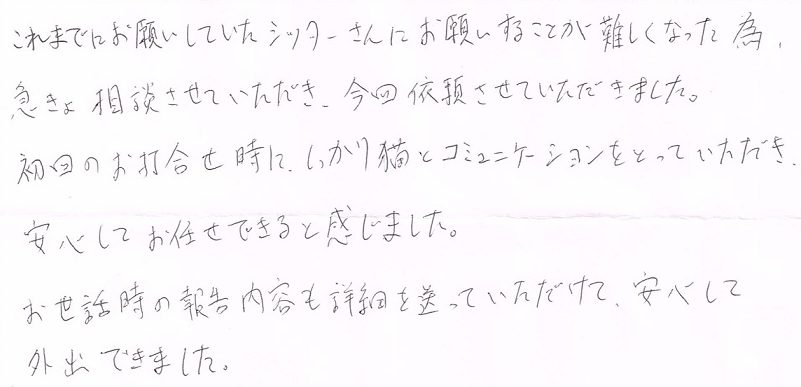 これまでにお願いしていたシッターさんにお願いすることが難しくなった為、
急きょ相談させていただき、今回依頼させていただきました。
初回のお打合せ時に、しっかり猫とコミュニケーションをとっていただき、
安心してお任せできると感じました。
お世話時の報告内容も詳細を送っていただけて、安心して
外出できました。